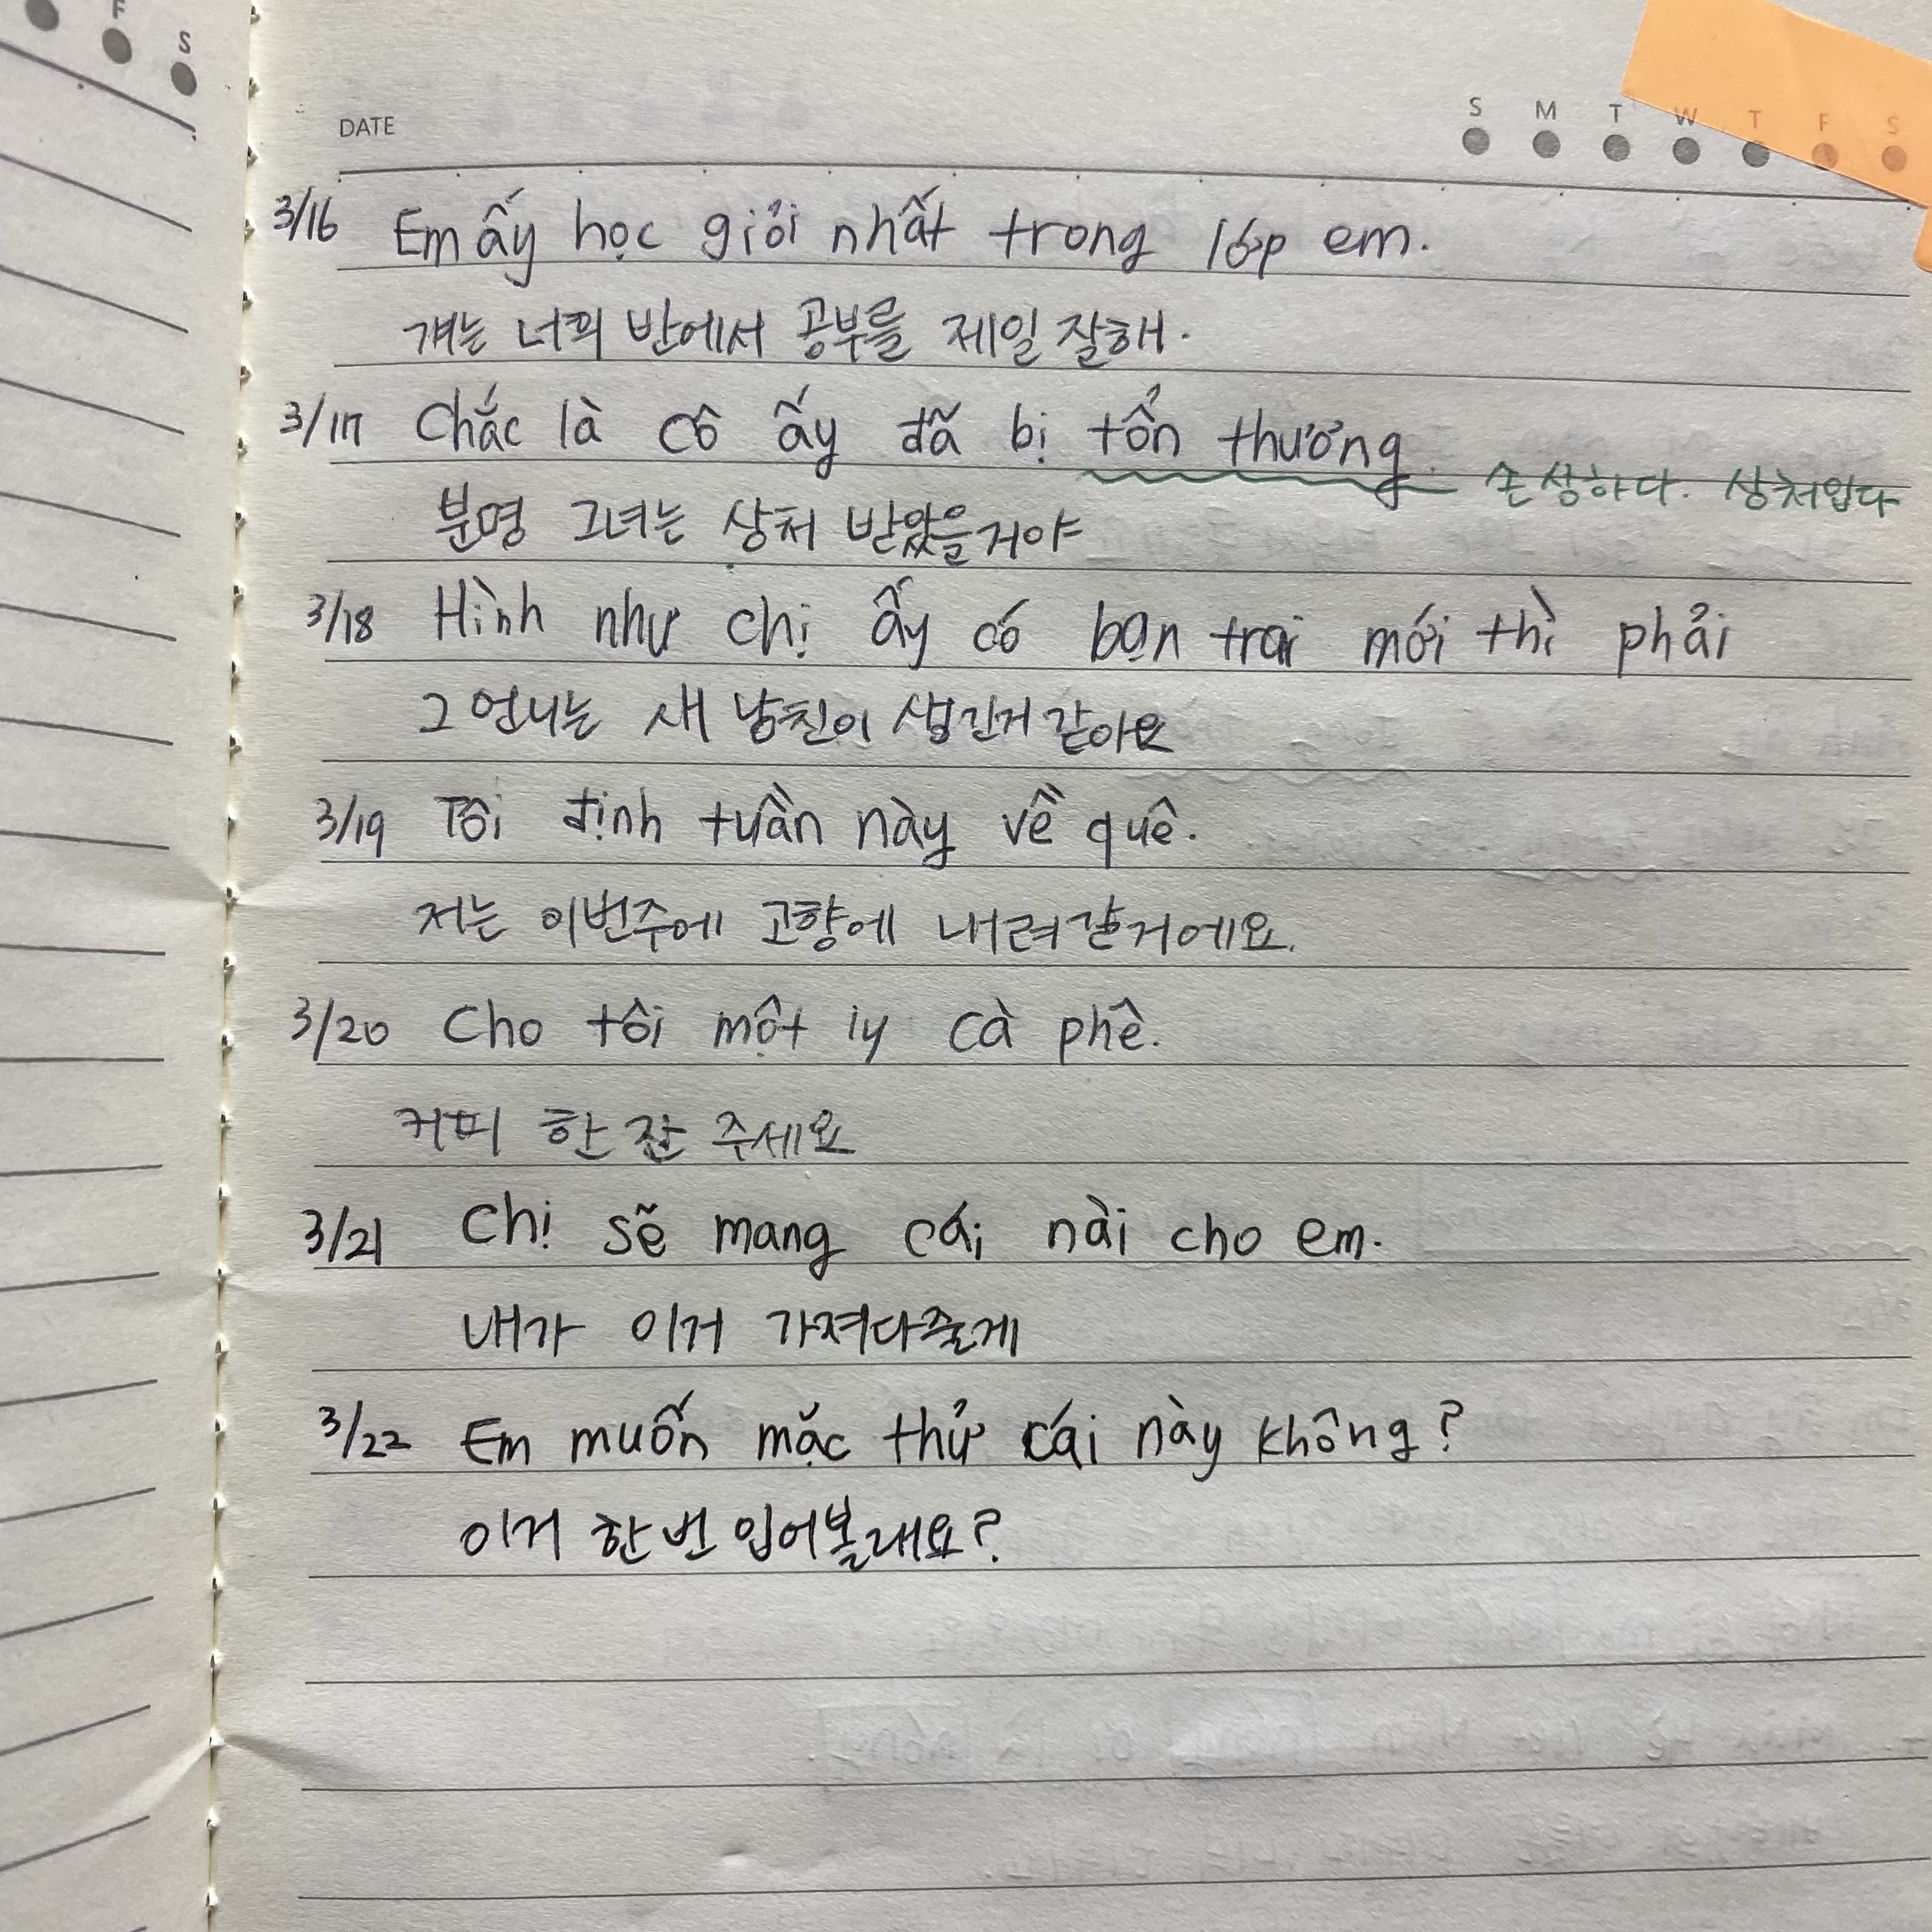 F
S
DATE
S M T W T F S
3/16 Em ấy học giỏi nhất trong lớp em.
걔는 너희 반에서 공부를 제일 잘해.
3/17 Chắc là cô ấy đã bị tổn thương.
손상하다. 상처입다
분명 그녀는 상처 받았을거야
3/18 Hình như chị ấy có bạn trai mới thì phải
그 언니는 새 남친이 생긴거 같아요
3/19 Tôi định tuần này về quê.
저는 이번주에 고향에 내려갈거에요.
3/20 Cho tôi một ly cà phê.
커피 한 잔 주세요
3/21 Chị sẽ mang cái nài cho em.
내가 이거 가져다줄게
3/22 Em muốn mặc thử cái này không?
이거 한 번 입어볼래요?